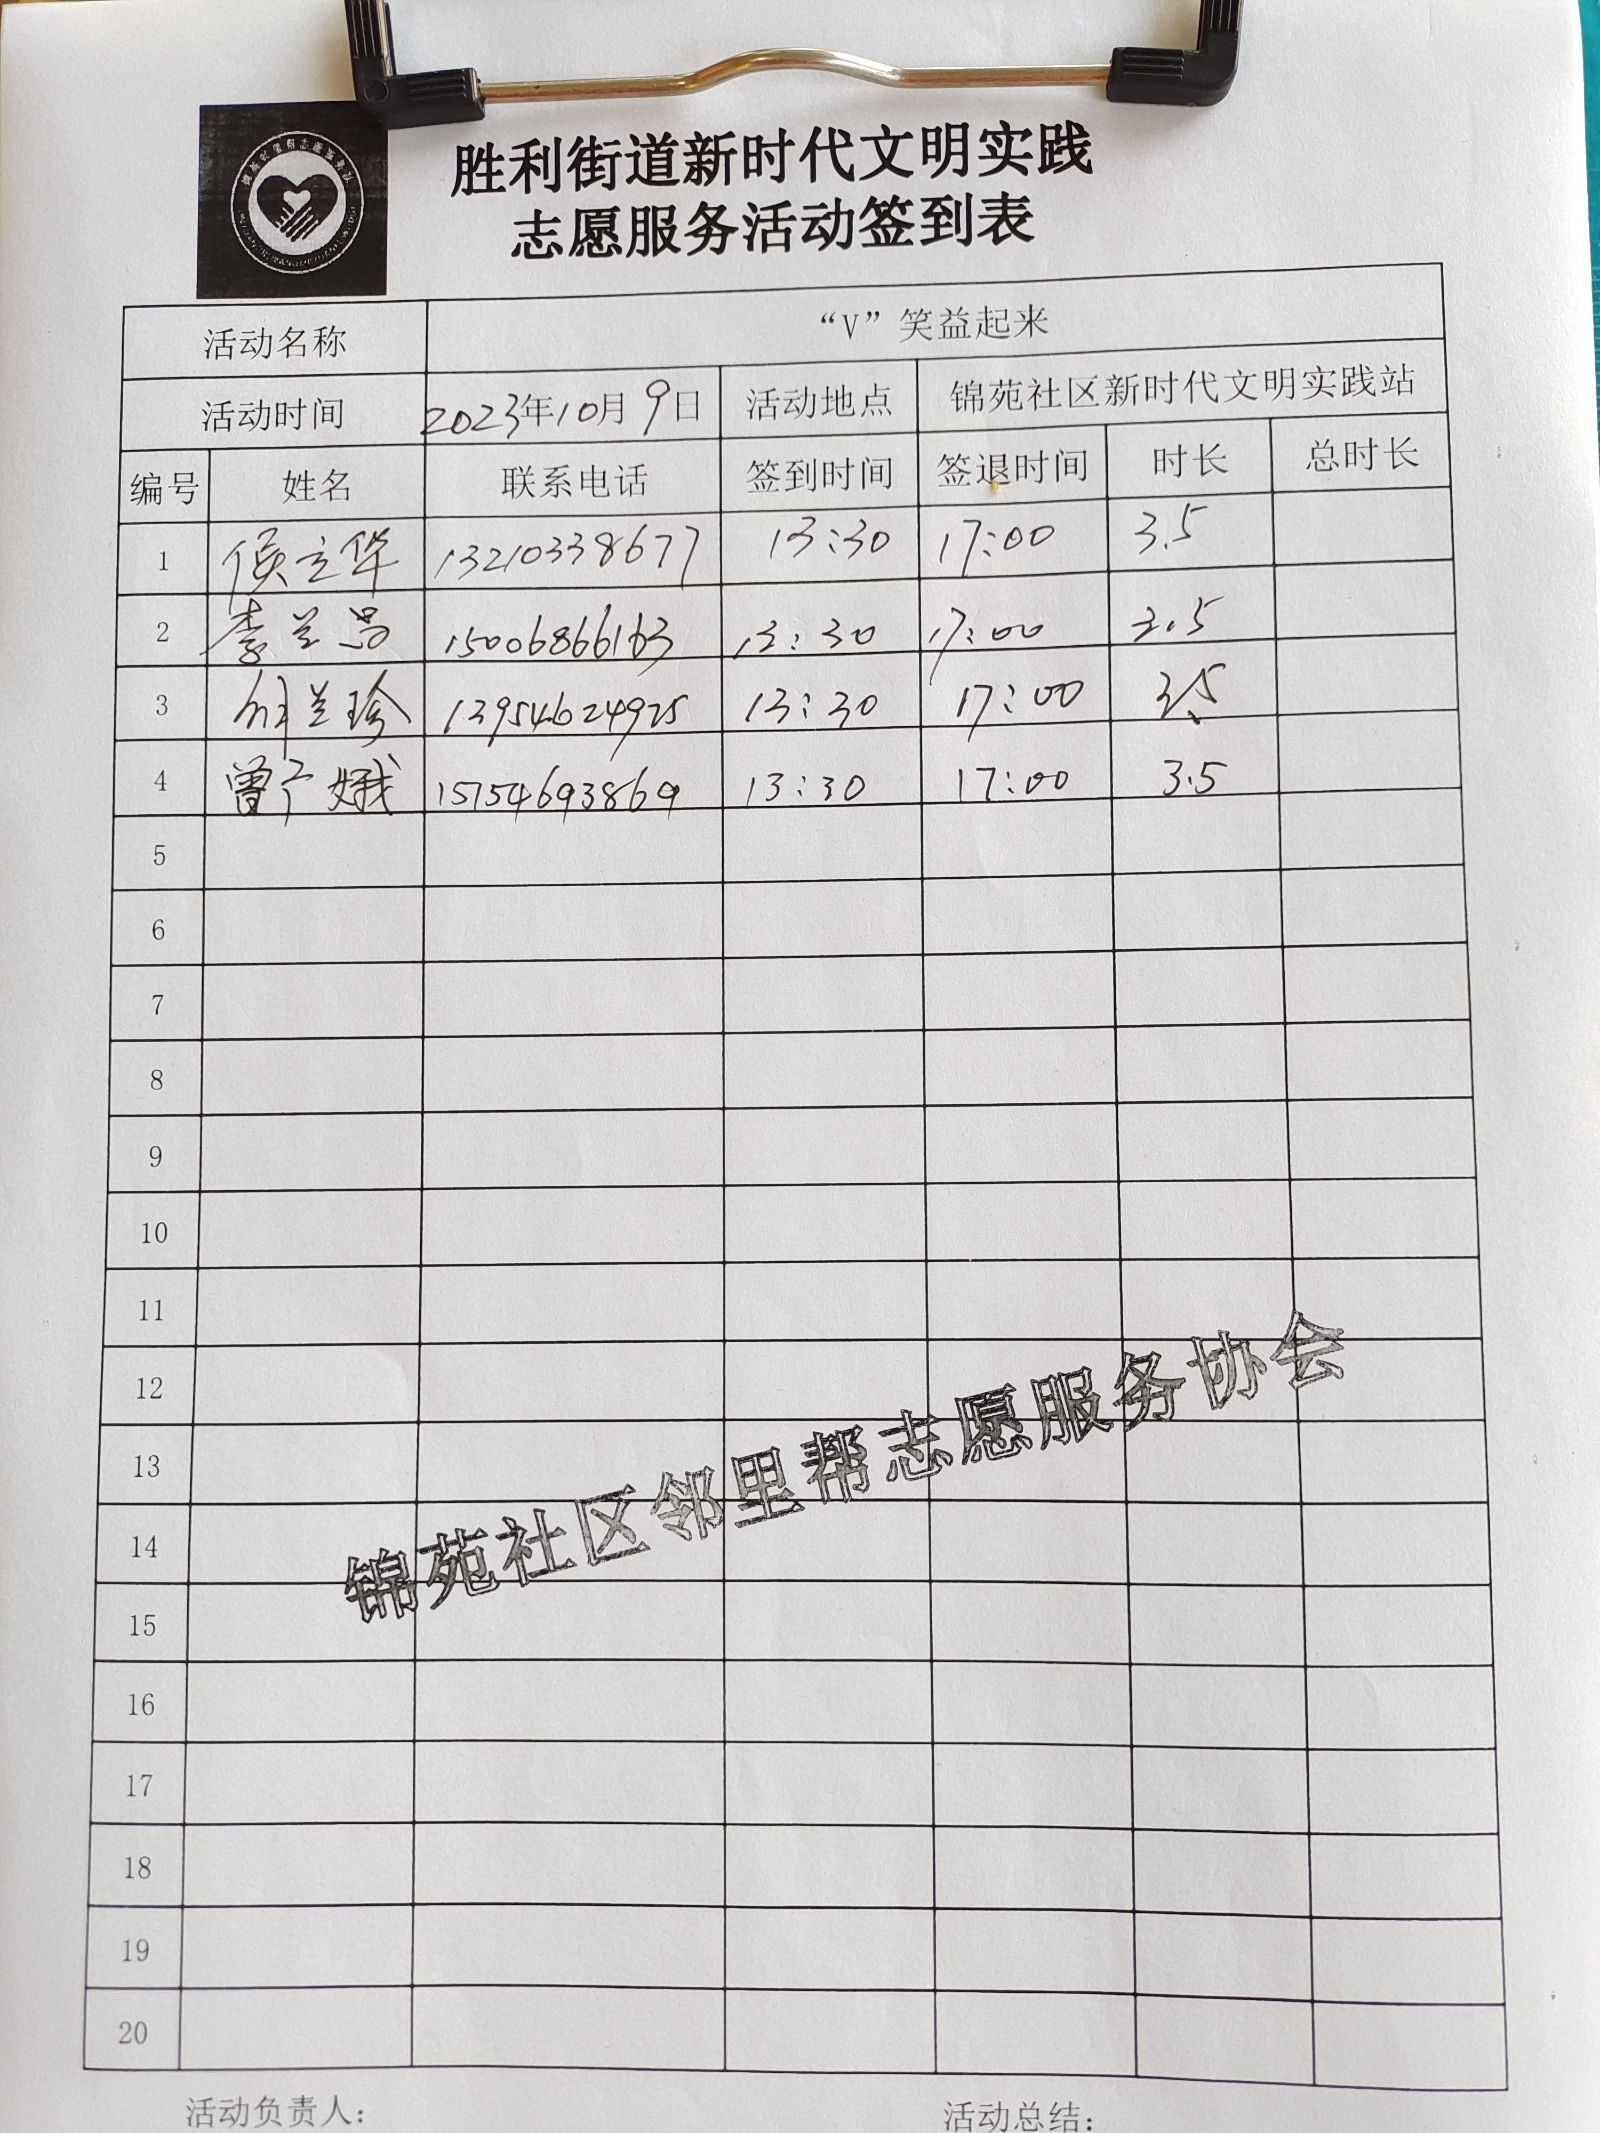 胜利街道新时代文明实践
志愿服务活动签到表
活动名称 “V”笑益起来
活动时间 2023年10月9日 活动地点 锦苑社区新时代文明实践站
编号 姓名 联系电话 签到时间 签退时间 时长 总时长
1 侯立华 13210338677 13:30 17:00 3.5
2 李兰 15006866163 13:30 17:00 3.5
3 兰珍 13954624925 13:30 17:00 3.5
4 曾广娥 15754693869 13:30 17:00 3.5
5
6
7
8
9
10
11
12
13
14
15
16
17
18
19
20
锦苑社区邻里帮志愿服务协会
活动负责人: 活动总结: